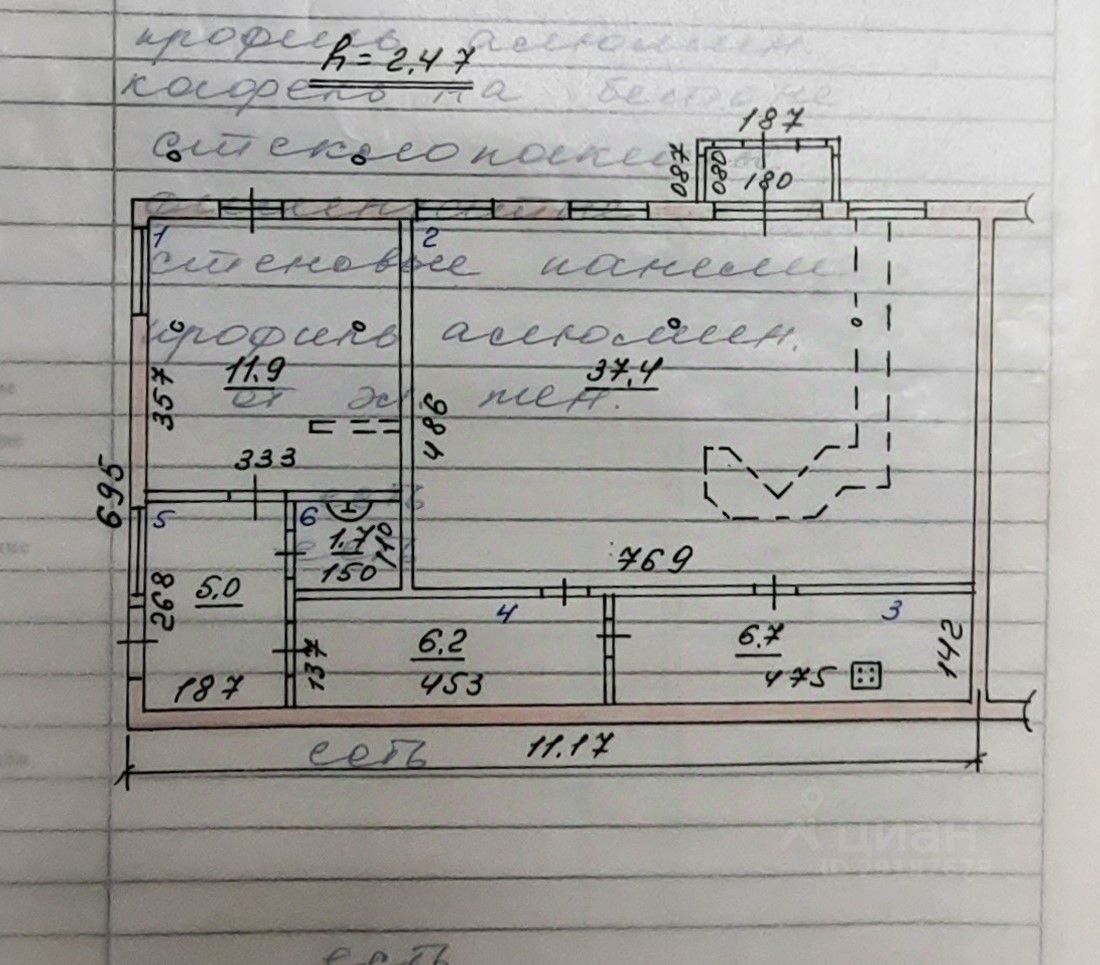 профиль алюмин
h=2.47
кафель на бетоне
стеклопакеты
187
087
080
180
1
2
стеновые панели
профиль алюмин.
11.9
37,4
357
от ж/мен.
486
333
695
есть
5
6
1.7
110
150
769
268
5.0
4
3
6.2
6.7
137
142
187
453
475
есть
11.17
циан
есть